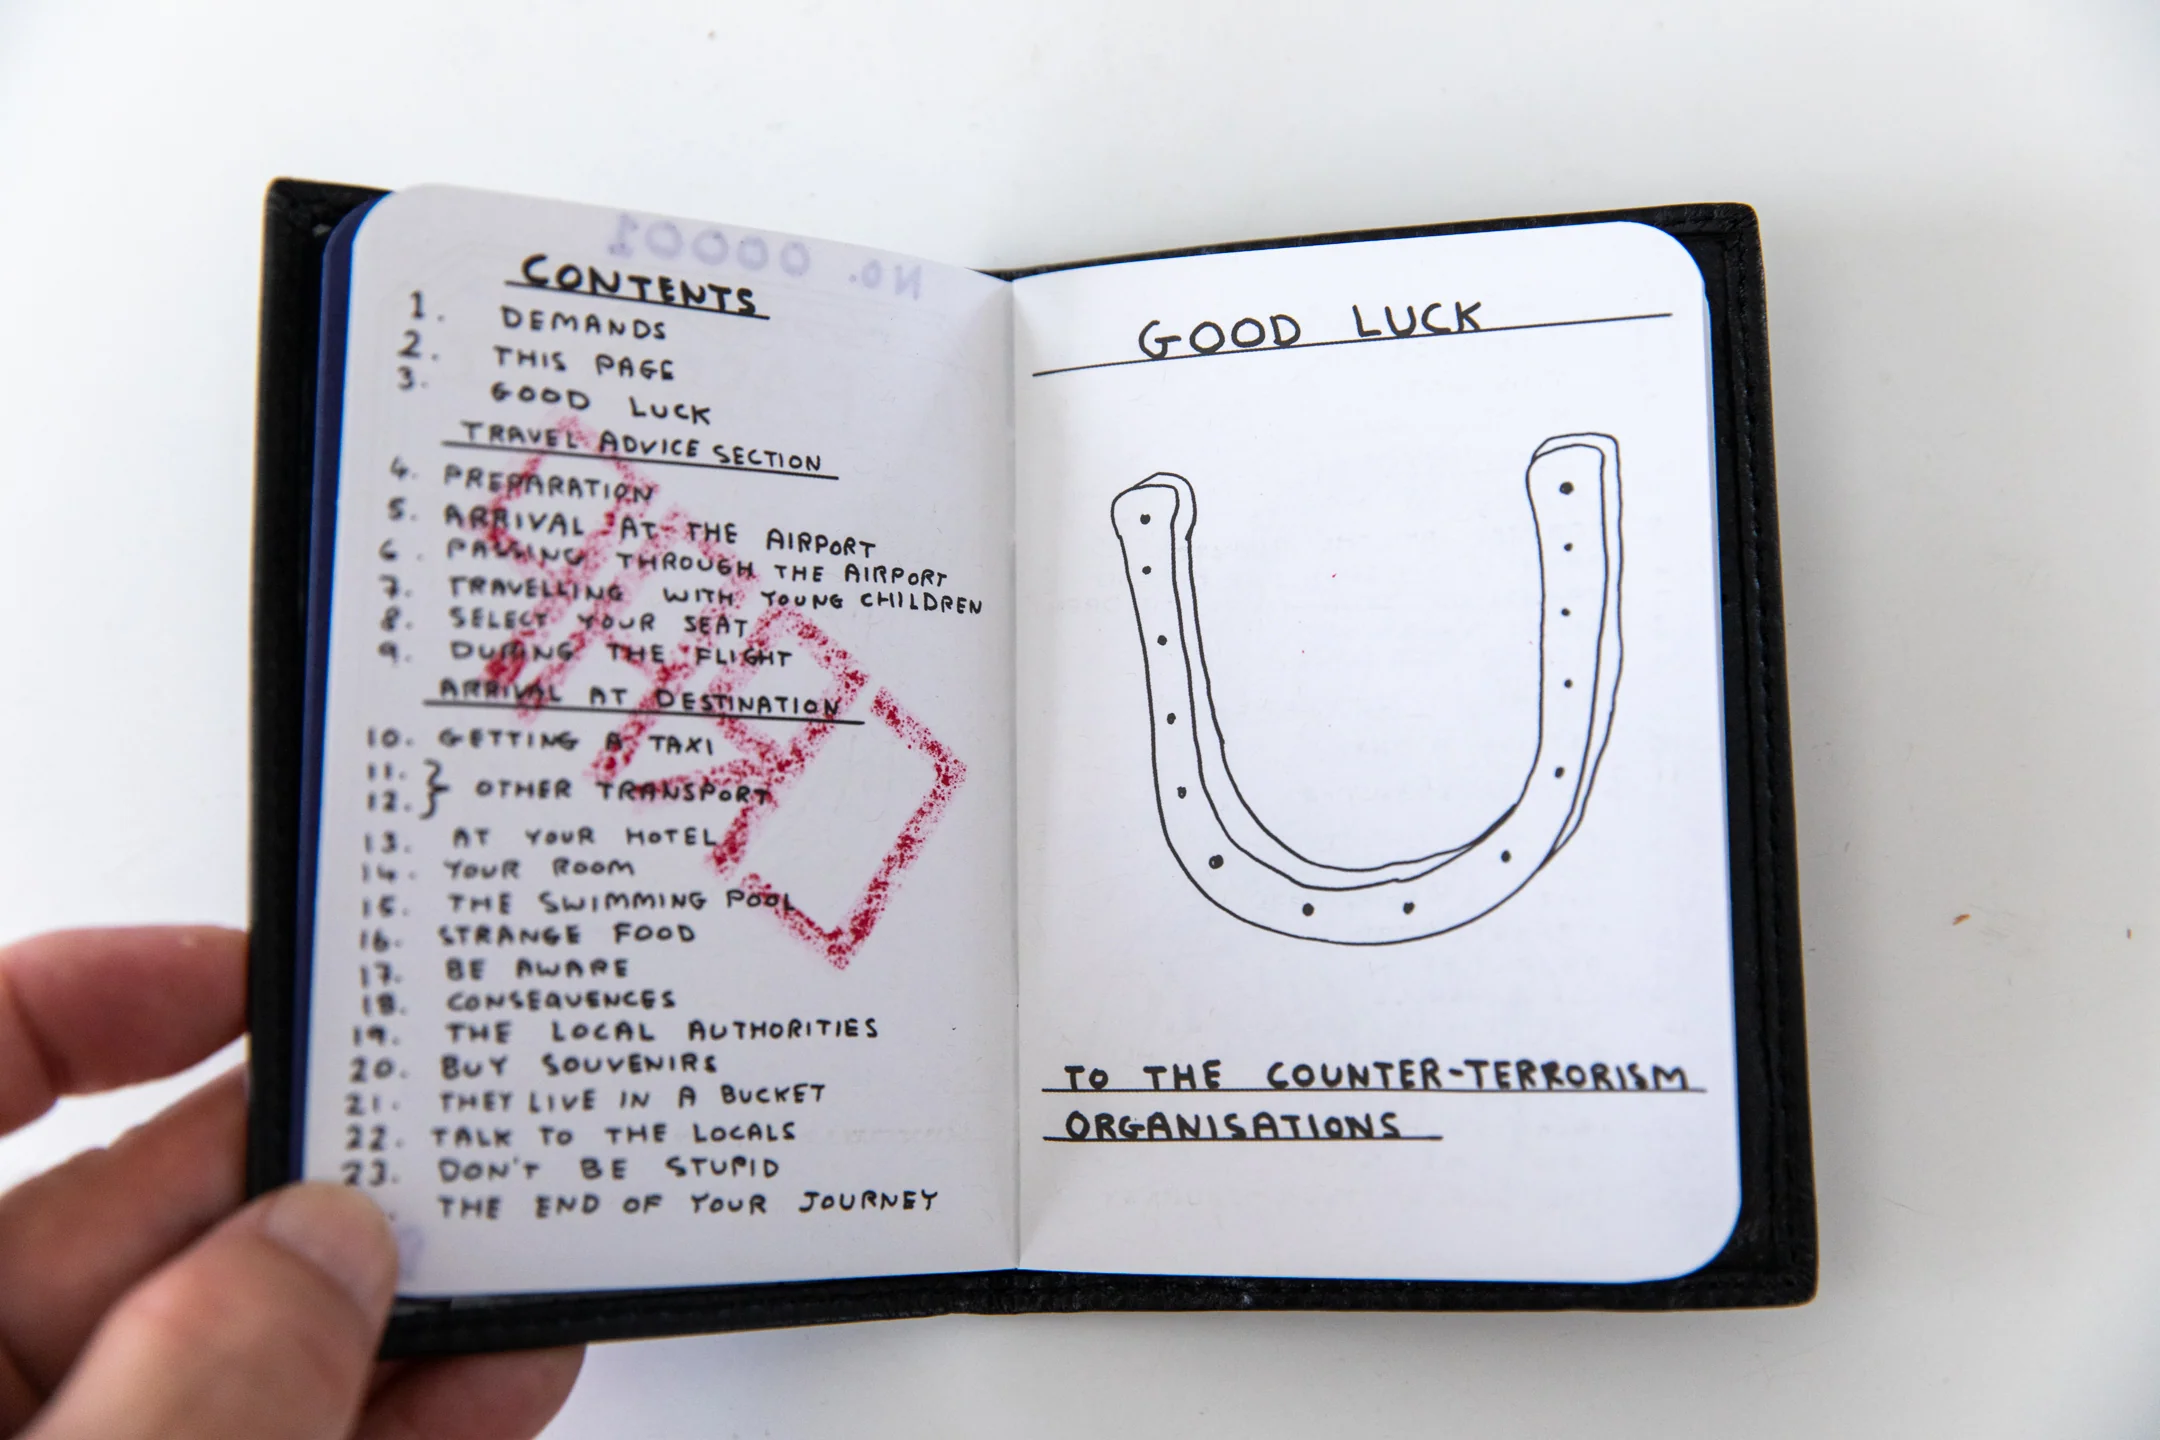 No. 00001
CONTENTS
1. DEMANDS
2. THIS PAGE
3. GOOD LUCK
TRAVEL ADVICE SECTION
4. PREPARATION
5. ARRIVAL AT THE AIRPORT
6. PASSING THROUGH THE AIRPORT
7. TRAVELLING WITH YOUNG CHILDREN
8. SELECT YOUR SEAT
9. DURING THE FLIGHT
ARRIVAL AT DESTINATION
10. GETTING A TAXI
11.
12. } OTHER TRANSPORT
13. AT YOUR HOTEL
14. YOUR ROOM
15. THE SWIMMING POOL
16. STRANGE FOOD
17. BE AWARE
18. CONSEQUENCES
19. THE LOCAL AUTHORITIES
20. BUY SOUVENIRS
21. THEY LIVE IN A BUCKET
22. TALK TO THE LOCALS
23. DON'T BE STUPID
THE END OF YOUR JOURNEY
GOOD LUCK
TO THE COUNTER-TERRORISM
ORGANISATIONS